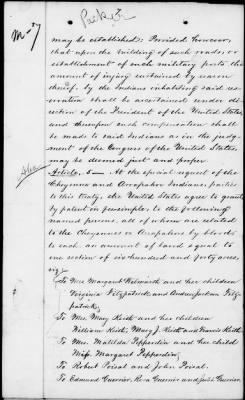 Parker
No 7
may be established: Provided however,
that upon the building of such roads, or
establishment of such military posts, the
amount of injury sustained by reason
thereof, by the Indians inhabiting said res-
ervation shall be ascertained under di-
rection of the President of the United States,
and thereupon such compensation shall
be made to said Indians as in the judg-
ment of the Congress of the United States
may be deemed just and proper
Article, 5 — At the special request of the
Cheyenne and Arrapahoe Indians, parties
to this treaty, the United States agree to grant
by patent in fee simple, to the following
named persons, all of whom are related
to the Cheyennes or Arrapahoes by blood,
to each, an amount of land equal to
one section of six hundred and forty acres,
viz;
To Mrs Margaret Wilmarth and her children
Virginia Fitzpatrick and Andrew Jackson Fitz-
patrick
To Mrs. Mary Keith and her children
William Keith, Mary J. Keith and Francis Keith
To Mrs. Matilda Pepperdin and her child
Miss. Margaret Pepperdin;
To Robert Poisal and John Poisal.
To Edmund Guerrier, Rosa Guerrier and Julia Guerrier.